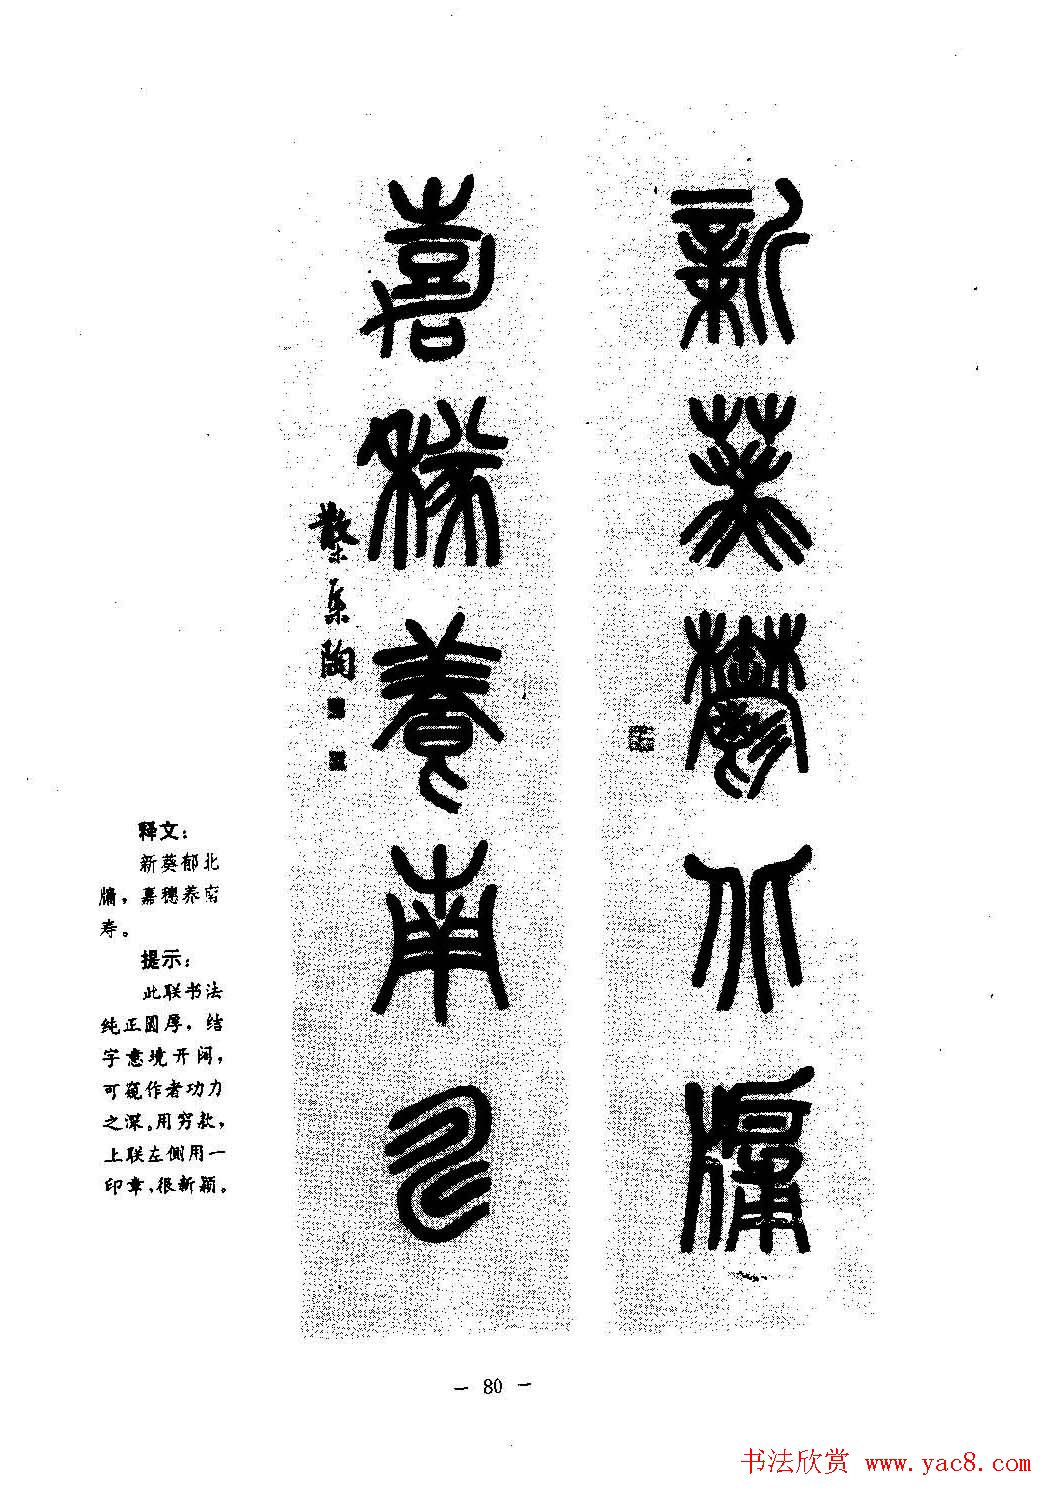 新葵鬱北牖
嘉穟養南
散木集陶
释文：
新葵郁北
牖，嘉穗养南
寿。
提示：
此联书法
纯正圆厚，结
字意境开阔，
可窥作者功力
之深。用穷款，
上联左侧用一
印章，很新颖。
— 80 —
书法欣赏 www.yac8.com